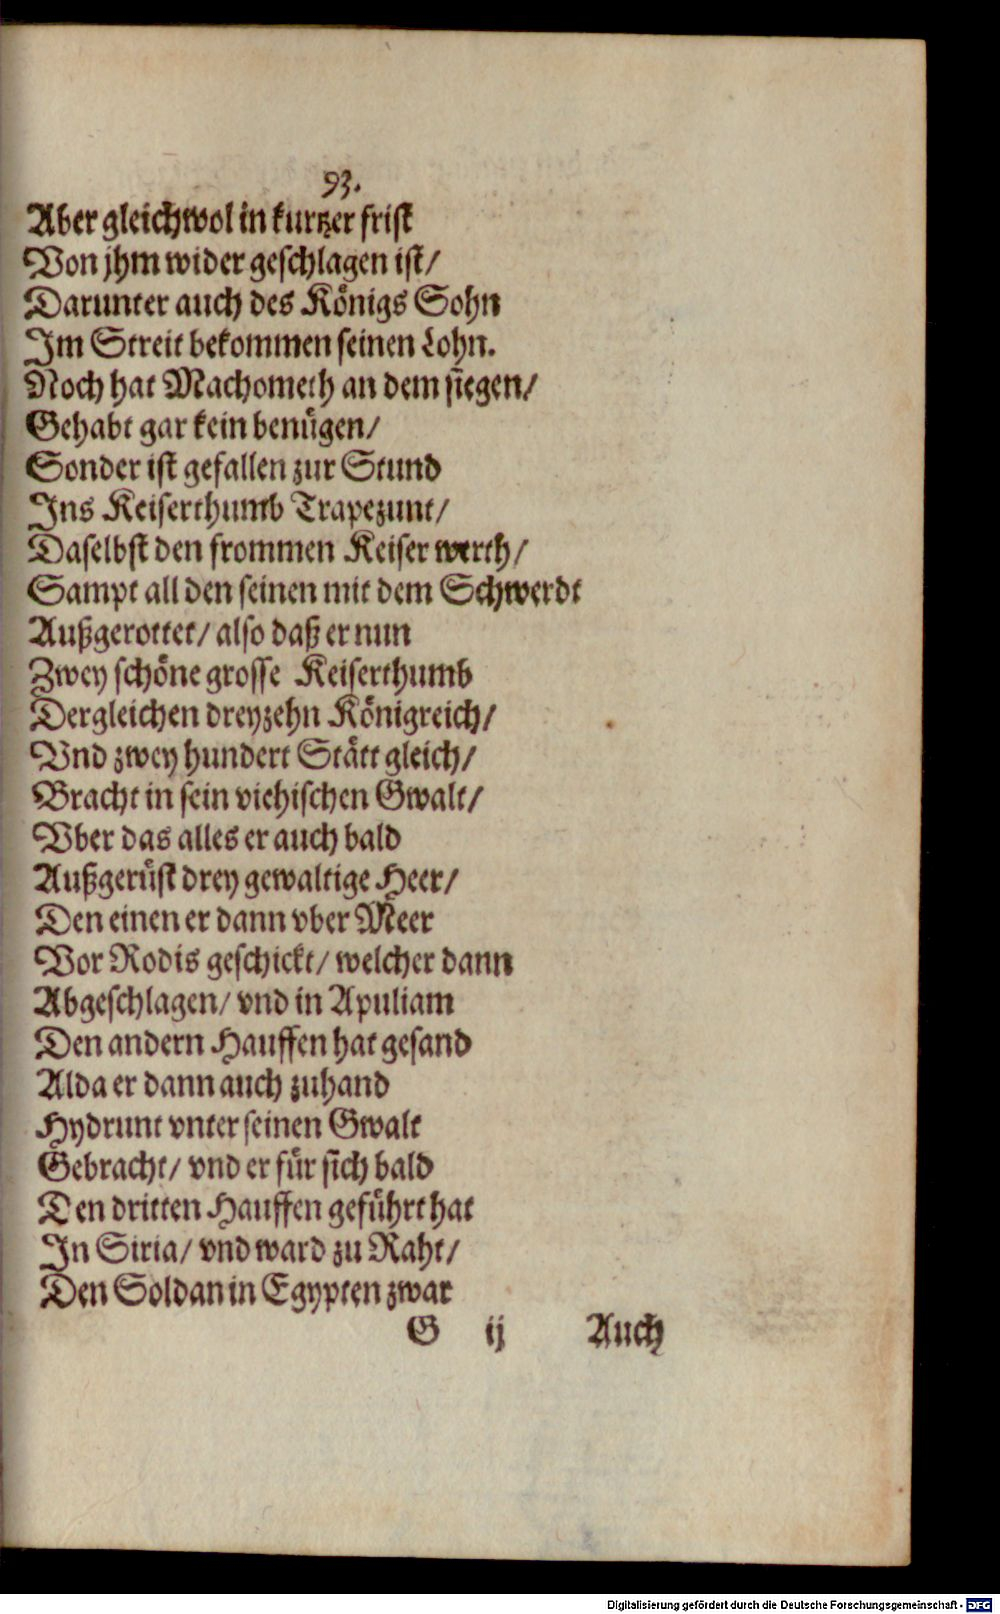 93.
Aber gleichwol in kurtzer frist
Von jhm wider geschlagen ist/
Darunter auch des Königs Sohn
Im Streit bekommen seinen Lohn.
Noch hat Machometh an dem siegen/
Gehabt gar kein benügen/
Sonder ist gefallen zur Stund
Ins Keiserthumb Trapezunt/
Daselbst den frommen Keiser werth/
Sampt all den seinen mit dem Schwerdt
Außgerottet/ also daß er nun
Zwey schöne grosse Keiserthumb
Dergleichen dreyzehn Königreich/
Vnd zwey hundert Stätt gleich/
Bracht in sein viehischen Gwalt/
Vber das alles er auch bald
Außgerüst drey gewaltige Heer/
Den einen er dann vber Meer
Vor Rodis geschickt/ welcher dann
Abgeschlagen/ vnd in Apuliam
Den andern Hauffen hat gesand
Alda er dann auch zuhand
Hydrunt vnter seinen Gwalt
Gebracht/ vnd er für sich bald
Den dritten Hauffen geführt hat
In Siria/ vnd ward zu Raht/
Den Soldan in Egypten zwar
G ij Auch
Digitalisierung gefördert durch die Deutsche Forschungsgemeinschaft - DFG